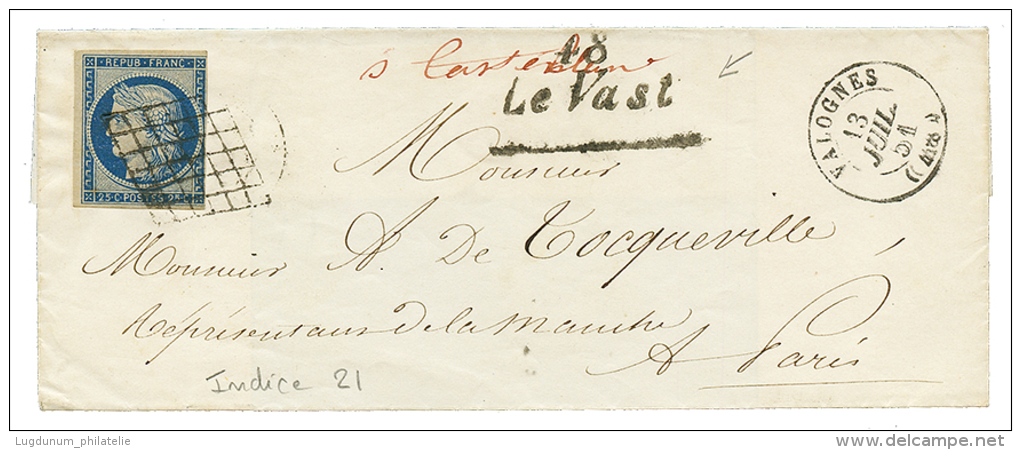 REPUB·FRANC·
25·C·POSTES·25·C
48
Le Vast
VALOGNES
13
JUIL.
51
Monsieur
Monsieur A. De Tocqueville
Représentant de la Manche
A Paris
Indice 21
Lugdunum_philatelie
delcampe.net